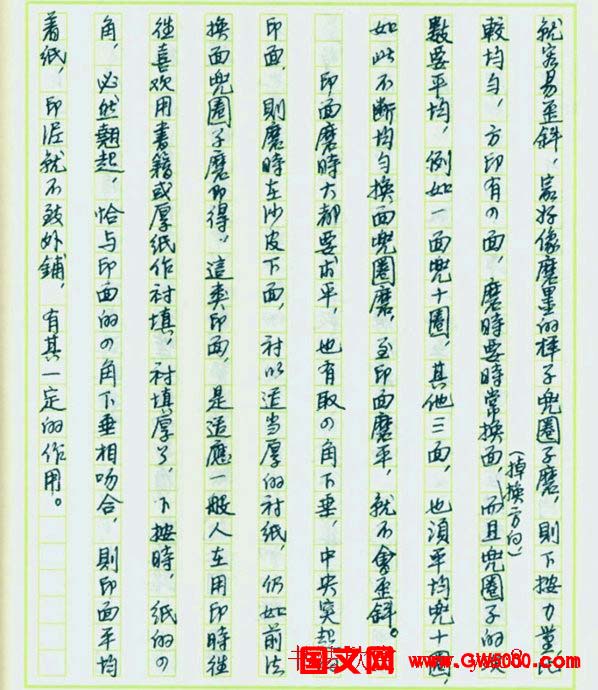 就容易歪斜,最好像磨墨的样子兜圈子磨,則下按力量比
較均匀,方印有の面,磨時要時常換面,(掉换方向)而且兜圈子的
數要平均,例如一面兜十圈,其他三面,也須平均兜十圈
如此不断均匀換面兜圈磨,至印面磨平,就不會歪斜。
印面磨時大都要求平,也有取の角下垂,中央突起
印面,則磨時在沙皮下面,衬以适当厚的衬纸,仍如前法
換面兜圈子磨即得。這类印面,是适應一般人在用印時往
往喜欢用書籍或厚纸作衬填,衬填厚了,下按時,纸的の
角,必然翹起,恰与印面的の角下垂相吻合,則印面平均
着纸,印泥就不致外鋪,有其一定的作用。
国文网 www.GW5000.com